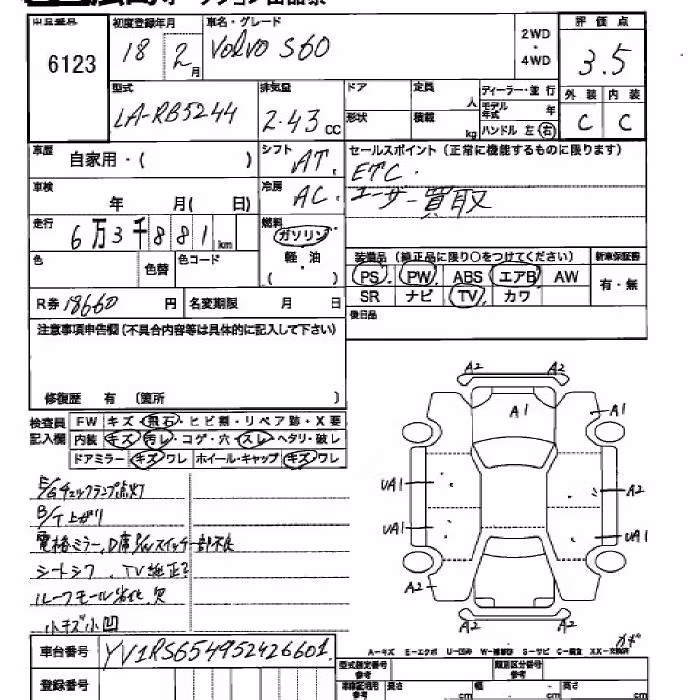 出品番号 初度登録年月 車名・グレード 評価点
6123 18 2月 VOLVO S60 2WD・4WD 3.5
型式 排気量 ドア 定員 人 ディーラー・並行 外装 内装
LA-RB5244 2.43 CC 形状 積載 kg モデル年式 年 C C
ハンドル 左 右
車歴 自家用・( ) シフト AT. セールスポイント(正常に機能するものに限ります)
ETC.
車検 年 月( 日) 冷房 AC. ユーザー買取
走行 6万3千881km 燃料 ガソリン
軽・油
( )
装備品(純正品に限り○をつけてください) 新車保証書
色 色替 色コード PS PW ABS エアB AW 有・無
R券 18660 円 名変期限 月 日 SR ナビ TV カワ
注意事項申告欄(不具合内容等は具体的に記入して下さい) 後日品
修復歴 有 (箇所 )
検査員記入欄 FW キズ・飛石・ヒビ割・リペア跡・X要
内装 キズ・汚レ・コゲ・穴・スレ・ヘタリ・破レ
ドアミラー キズ・ワレ ホイール・キャップ キズ・ワレ
A2 A2
A1 A1
E/Gチェックランプ点灯 UA1 A2
B/T上がり UA1 UA1
電格ミラー、D席P/Wスイッチ一部不良
シートシワ、TV純正?
A2
ルーフモール劣化、欠
小キズ小凹 A2 A2
車台番号 YV1RS654952426601
A-キズ E-エクボ U-凹み W-補修跡 S-サビ C-腐食 XX-交換済
登録番号 型式指定番号 参考 類別区分番号 参考
長さ cm 幅 cm 高さ cm